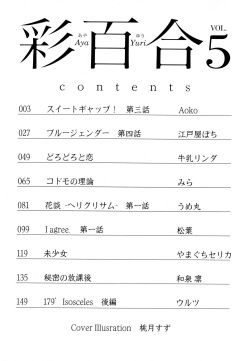 彩百合 VOL. 5
あや ゆう
Aya Yuri
contents
003 スイートギャップ! 第三話 Aoko
027 ブルージェンダー 第四話 江戸屋ぽち
049 どろどろと恋 牛乳リンダ
065 コドモの理論 みら
081 花談 -ヘリクリサム- 第一話 うめ丸
099 I agree. 第一話 松葉
119 未少女 やまぐちセリカ
135 秘密の放課後 和泉 凛
149 179° Isosceles 後編 ウルツ
Cover Illusration 桃月すず